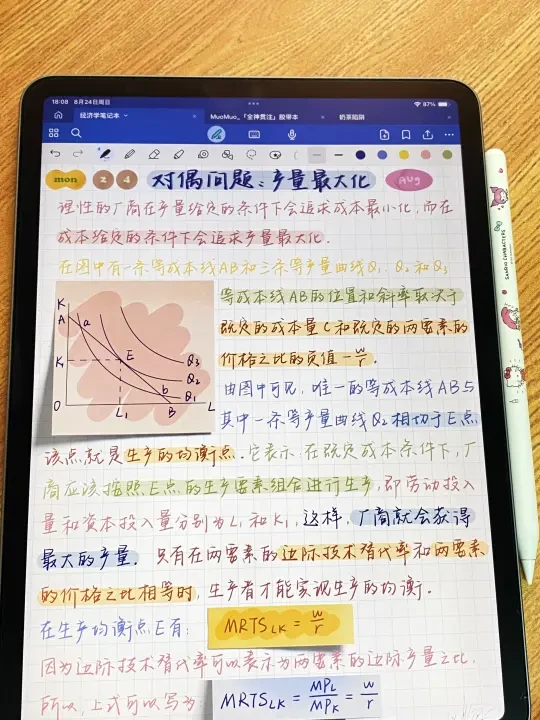 18:08 8月24日周日
87%
经济学笔记本
MuoMuo_「全神贯注」胶带本
奶茶陷阱
mon 2 4 对偶问题:产量最大化 Aug
理性的厂商在产量给定的条件下会追求成本最小化,而在
成本给定的条件下会追求产量最大化.
在图中有一条等成本线AB和三条等产量曲线Q₁、Q₂和Q₃
K
A a
K₁ E
Q₃
Q₂
b Q₁
O L₁ B L
等成本线AB的位置和斜率取决于
既定的成本量C和既定的两要素的
价格之比的负值-w/r.
由图中可见,唯一的等成本线AB与
其中一条等产量曲线Q₂相切于E点
该点就是生产的均衡点.它表示:在既定成本条件下,厂
商应该按照E点的生产要素组合进行生产,即劳动投入
量和资本投入量分别为L₁和K₁,这样,厂商就会获得
最大的产量.只有在两要素的边际技术替代率和两要素
的价格之比相等时,生产者才能实现生产的均衡.
在生产均衡点E有:
MRTS_LK = w/r
因为边际技术替代率可以表示为两要素的边际产量之比.
所以,上式可以写为:
MRTS_LK = MP_L/MP_K = w/r
SANRIO CHARACTERS